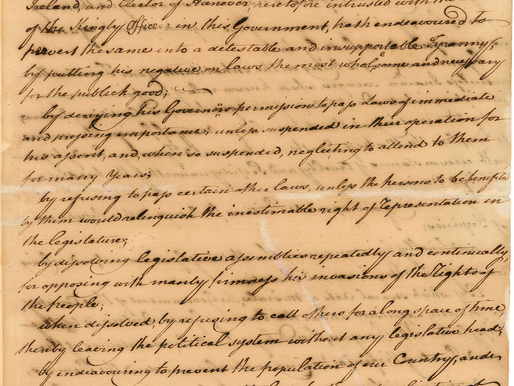 Ireland, and Elector of Hanover, heretofore intrusted with the
of the Kingly Office in this Government, hath endeavoured to
pervert the same into a detestable and insupportable Tyranny;
by putting his negative on laws the most wholesome and necessary
for the publick good;
by denying his Governors permission to pass Laws of immediate
and pressing importance, unless suspended in their operation for
his assent, and, when so suspended, neglecting to attend to them
for many Years;
by refusing to pass certain other laws, unless the persons to be benefited
by them would relinquish the inestimable right of representation in
the legislature;
by dissolving legislative assemblies repeatedly and continually,
for opposing with manly firmness his invasions of the Rights of
the people;
when dissolved, by refusing to call others for a long space of time
thereby leaving the political system without any legislative head;
by endeavouring to prevent the population of our Country, and